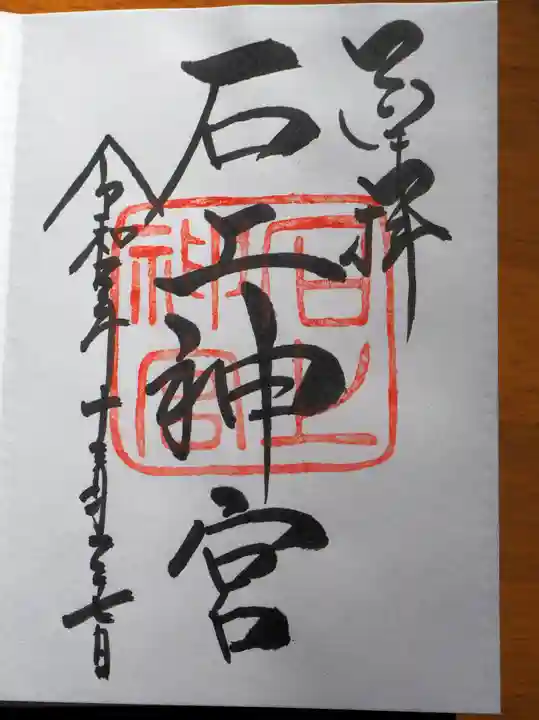 奉拝
石上神宮
石上
神宮
令和 年十二月二十七日